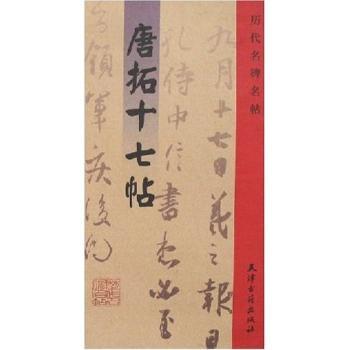 历代名碑名帖
天津古籍出版社
九月十七日羲之報且
孔侍中信書想必至
領軍疾後問
唐拓十七帖